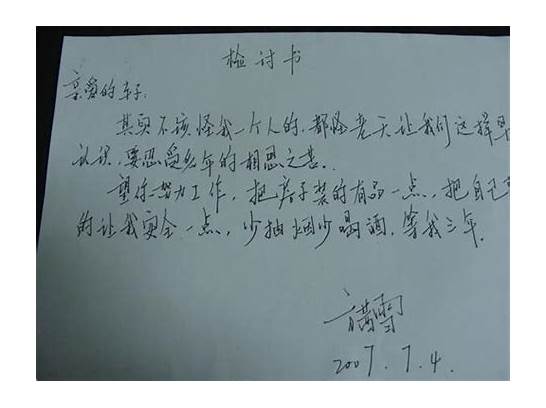 检讨书
亲爱的车子.
其实不该怪我一个人的.都怪老天让我们这样早
认识,要忍受多年的相思之苦.
望你努力工作,把房子装的有品一点,把自己
的让我安全一点,少抽烟少喝酒.等我三年.
2007.7.4.